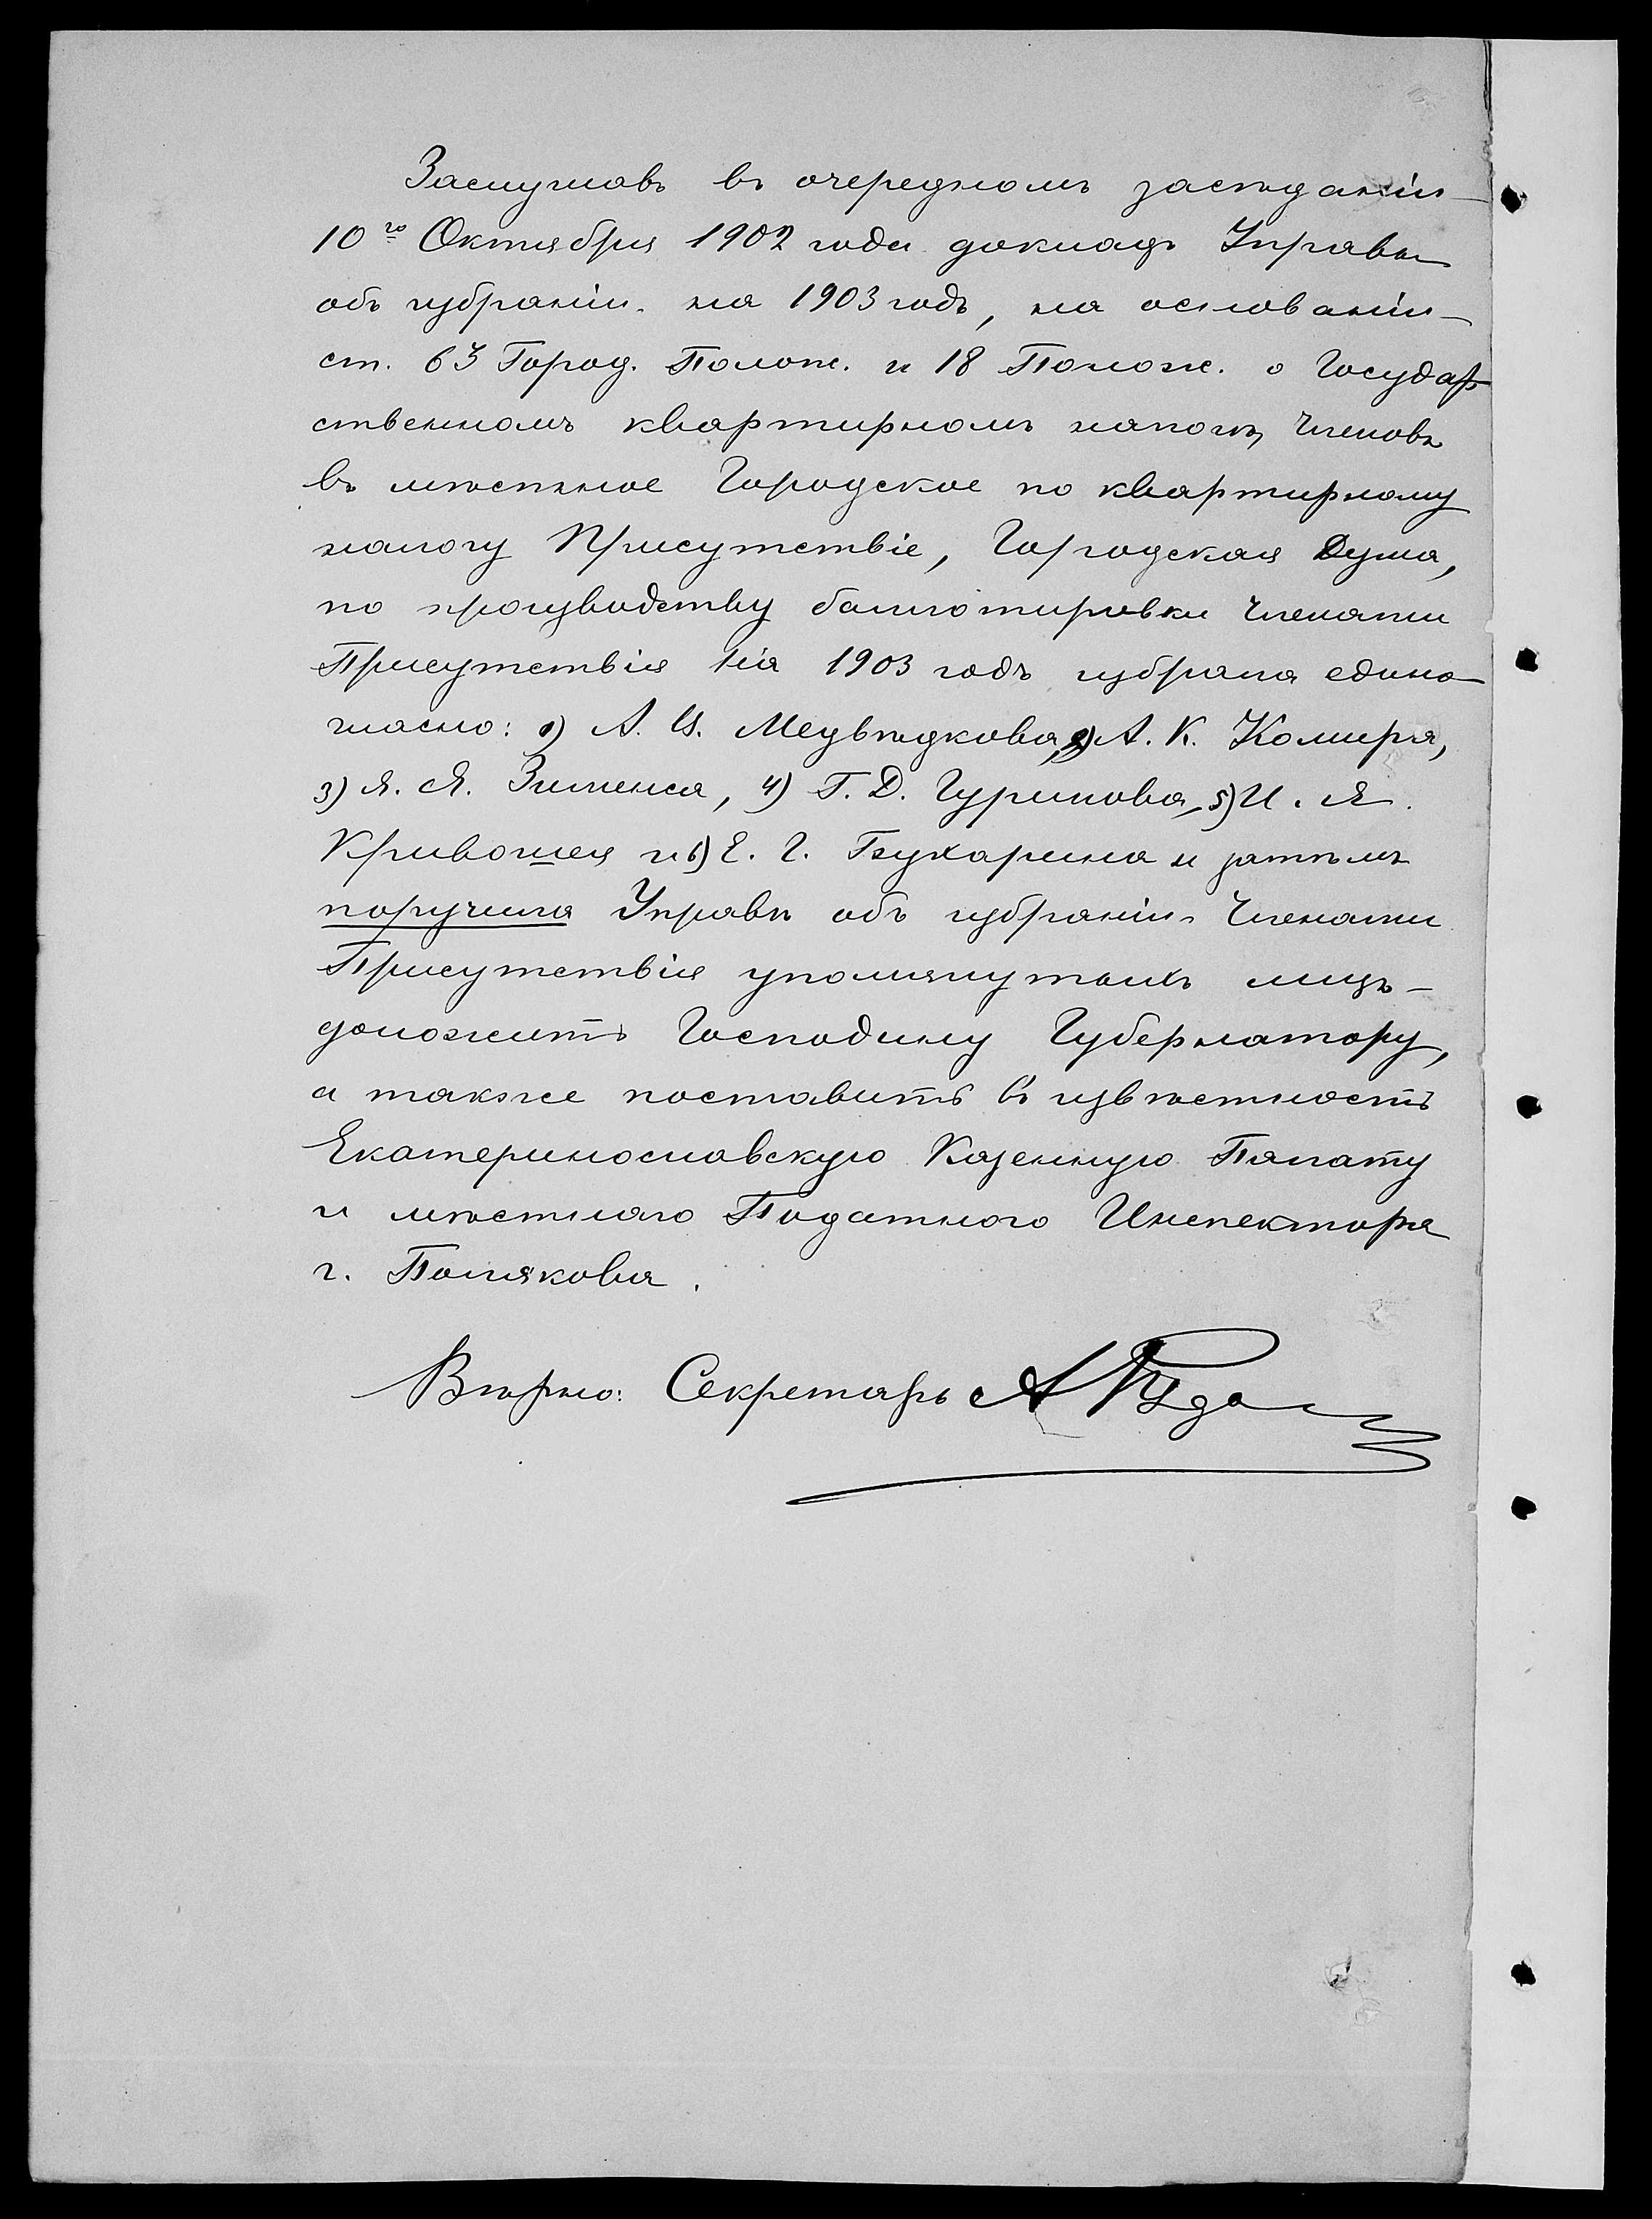 Заслушавъ въ очередномъ засѣданіи
10го Октября 1902 года докладъ Управы
объ избраніи на 1903 годъ, на основаніи
ст. 63 Город. Полож. и 18 Полож. о Государ
ственномъ квартирномъ налогѣ, Членовъ
въ мѣстное Городское по квартирному
налогу Присутствіе, Городская Дума,
по производству баллотировки Членами
Присутствія на 1903 годъ избрала едино
гласно: 1) А. И. Медвѣдкова, 2) А. К. Колмера,
3) Я. Я. Зименса, 4) Г. Д. Гурилова, 5) И. Я.
Кривошея и 6) Е. Г. Бухарина и затѣмъ
поручила Управѣ объ избраніи Членами
Присутствія упомянутыхъ лицъ –
доложить Господину Губернатору,
а также поставить въ извѣстность
Екатеринославскую Казенную Палату
и мѣстнаго Податного Инспектора
г. Полякова.
Вѣрно: Секретарь А